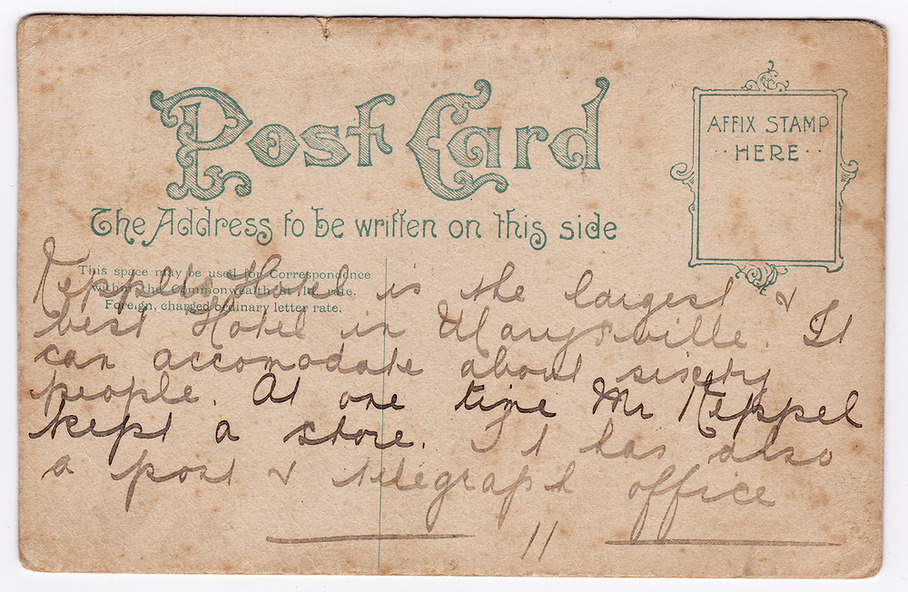 Post Card
AFFIX STAMP
HERE
The Address to be written on this side
This space may be used for Correspondence
within the Commonwealth at 1d. rate.
Foreign, charged ordinary letter rate.
Hotel is the largest &
best Hotel in Marysville. It
can accomodate about sixety
people. At one time Mr Keppel
kept a store. It has also
a post & telegraph office
11